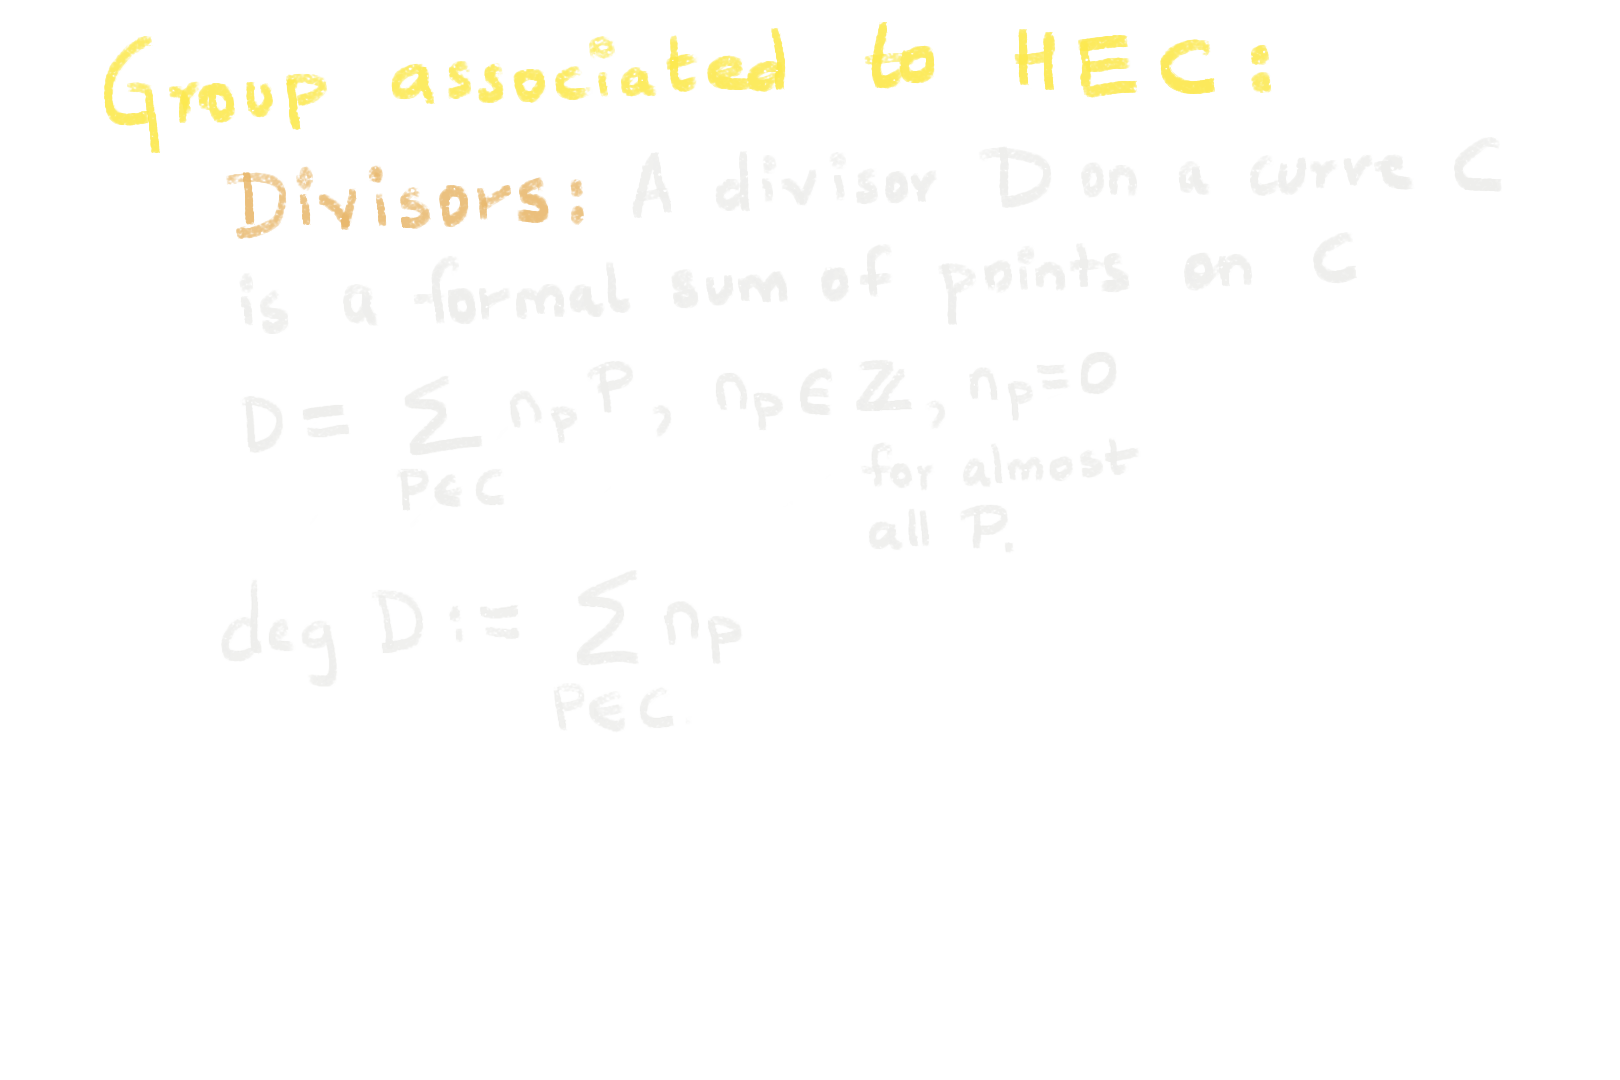 Group associated to HEC:
Divisors: A divisor D on a curve C
is a formal sum of points on C
D = ∑ n_P P, n_P ∈ ℤ, n_P = 0
P∈C
for almost
all P.
deg D := ∑ n_P
P∈C